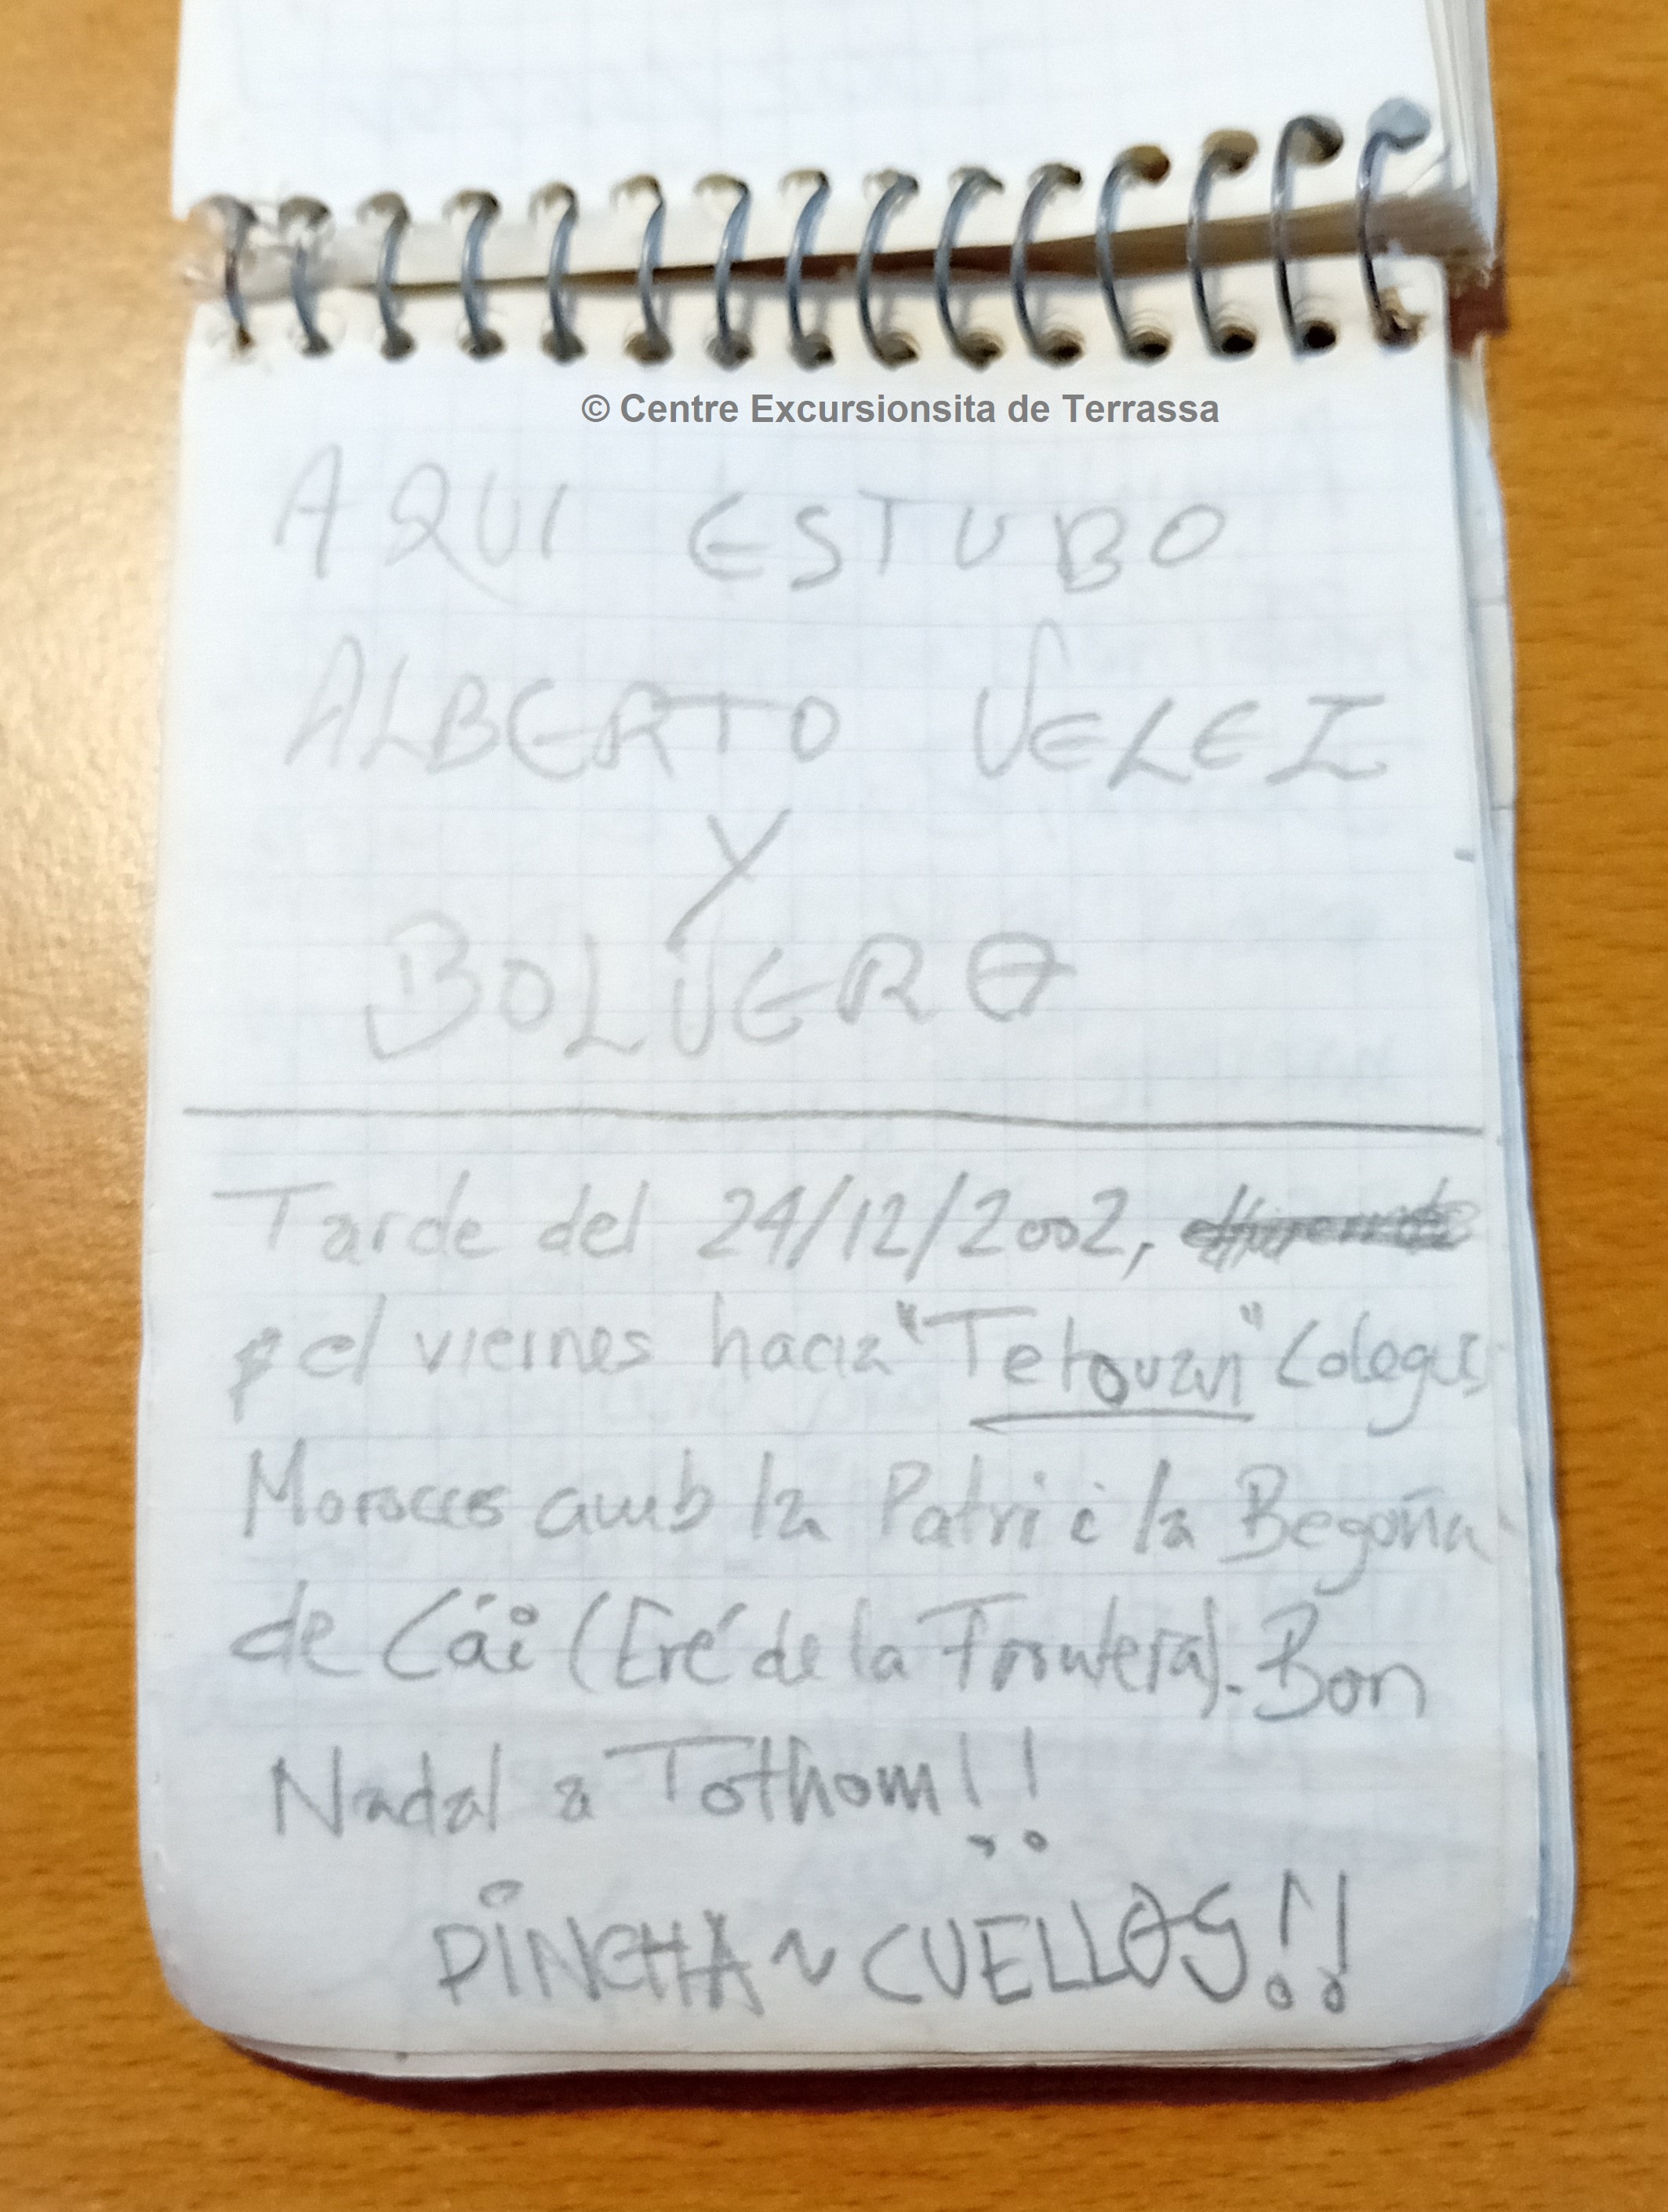 © Centre Excursionsita de Terrassa
AQUI ESTUBO
ALBERTO VELEZ
Y
BOLVERA
Tarde del 24/12/2002,
el viernes hacia "Tetouan" Colegas
Moroccos amb la Patri i la Begoña
de Cái (Eré de la Frontera). Bon
Nadal a Tothom!!
PINCHA~CUELLOS!!